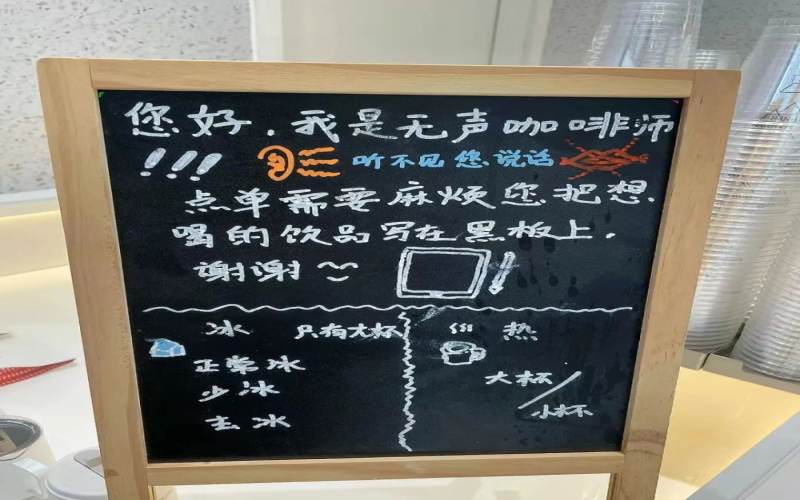 您好.我是无声咖啡师
!!! 听不见您说话
点单需要麻烦您把想
喝的饮品写在黑板上.
谢谢~
冰 只有大杯 热
正常冰
大杯/小杯
少冰
去冰